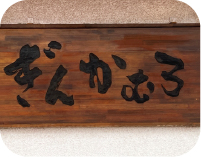 ぎんかむろ